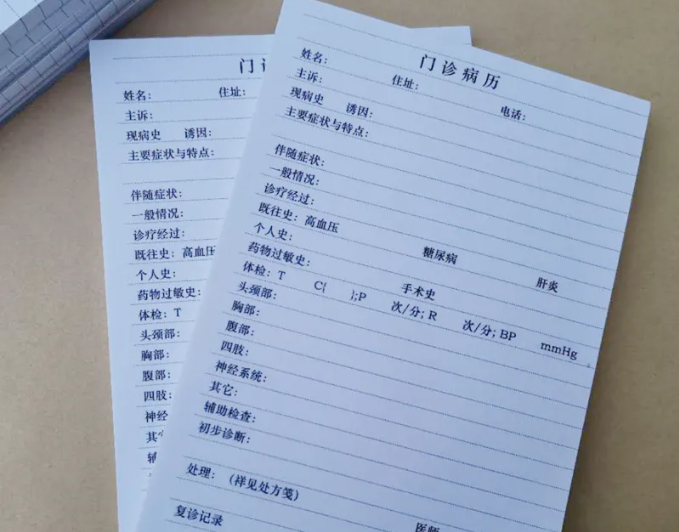 门诊病历
姓名： 住址： 电话：
主诉：
现病史 诱因：
主要症状与特点：
伴随症状：
一般情况：
诊疗经过：
既往史：高血压 糖尿病 肝炎
个人史：
药物过敏史： 手术史
体检：T C( );P 次/分; R 次/分; BP mmHg
头颈部：
胸部：
腹部：
四肢：
神经系统：
其它：
辅助检查：
初步诊断：
处理：（祥见处方笺）
复诊记录 医师
门诊
姓名： 住址：
主诉：
现病史 诱因：
主要症状与特点：
伴随症状：
一般情况：
诊疗经过：
既往史：高血压
个人史：
药物过敏史：
体检：T
头颈部：
胸部：
腹部：
四肢：
神经
其
初
处理
复诊